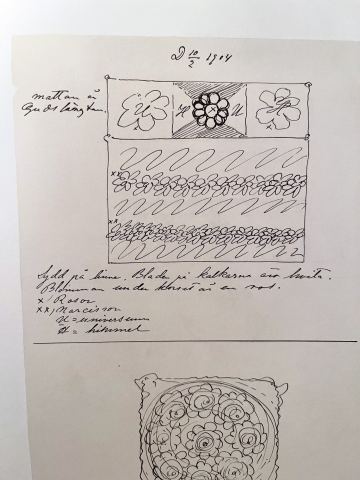 D 10/2 1904
mattan är
Guds längtan.
U
H
U
Sydd på linne. Blada på kalkarna äro hvita.
Blomman under korset är en ros.
x Rosor
xx, Narcisser
U = universum
H = himmel